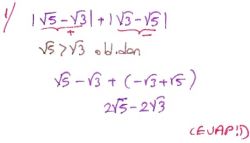 1/ |√5-√3| + |√3-√5|
+ -
√5 > √3 old.dan
√5 - √3 + (-√3+√5)
2√5 - 2√3
(CEVAP!!)